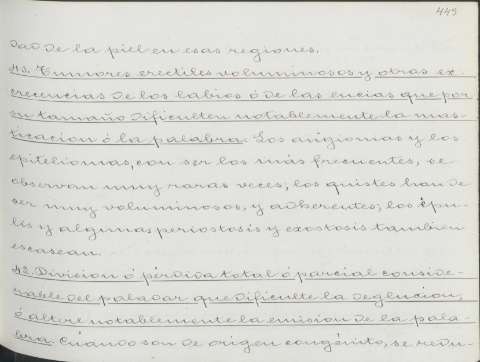 449
dad de la piel en esas regiones.
41. Tumores erectiles voluminosos y otras ex-
crecencias de los labios ó de las encias que por
su tamaño dificulten notablemente la mas-
ticacion ó la palabra. Los angiomas y los
epiteliomas, con ser los más frecuentes, se
observan muy raras veces; los quistes han de
ser muy voluminosos, y adherentes; los épu-
lis y algunas periostosis y exostosis tambien
escasean.
42. Division ó pérdida total ó parcial conside-
rable del paladar que dificulte la deglucion,
ó altere notablemente la emision de la pala-
bra. Cuando son de origen congénito, se redu-